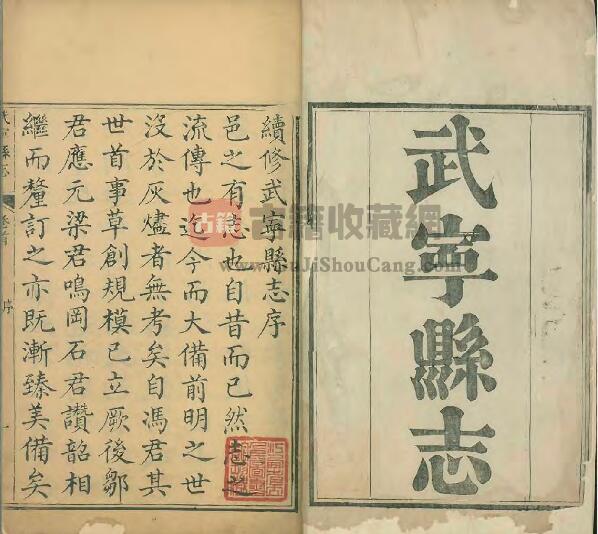 武寧縣志
續修武寧縣志序
邑之有志也自昔而已然志之
流傳也迄今而大備前明之世
沒於灰燼者無考矣自馮君其
世首事草創規模已立厥後鄒
君應元梁君鳴岡石君讚韶相
繼而釐訂之亦既漸臻美備矣
武寧縣志
卷首
序
一
古籍
古籍收藏網
www.GuJiShouCang.com